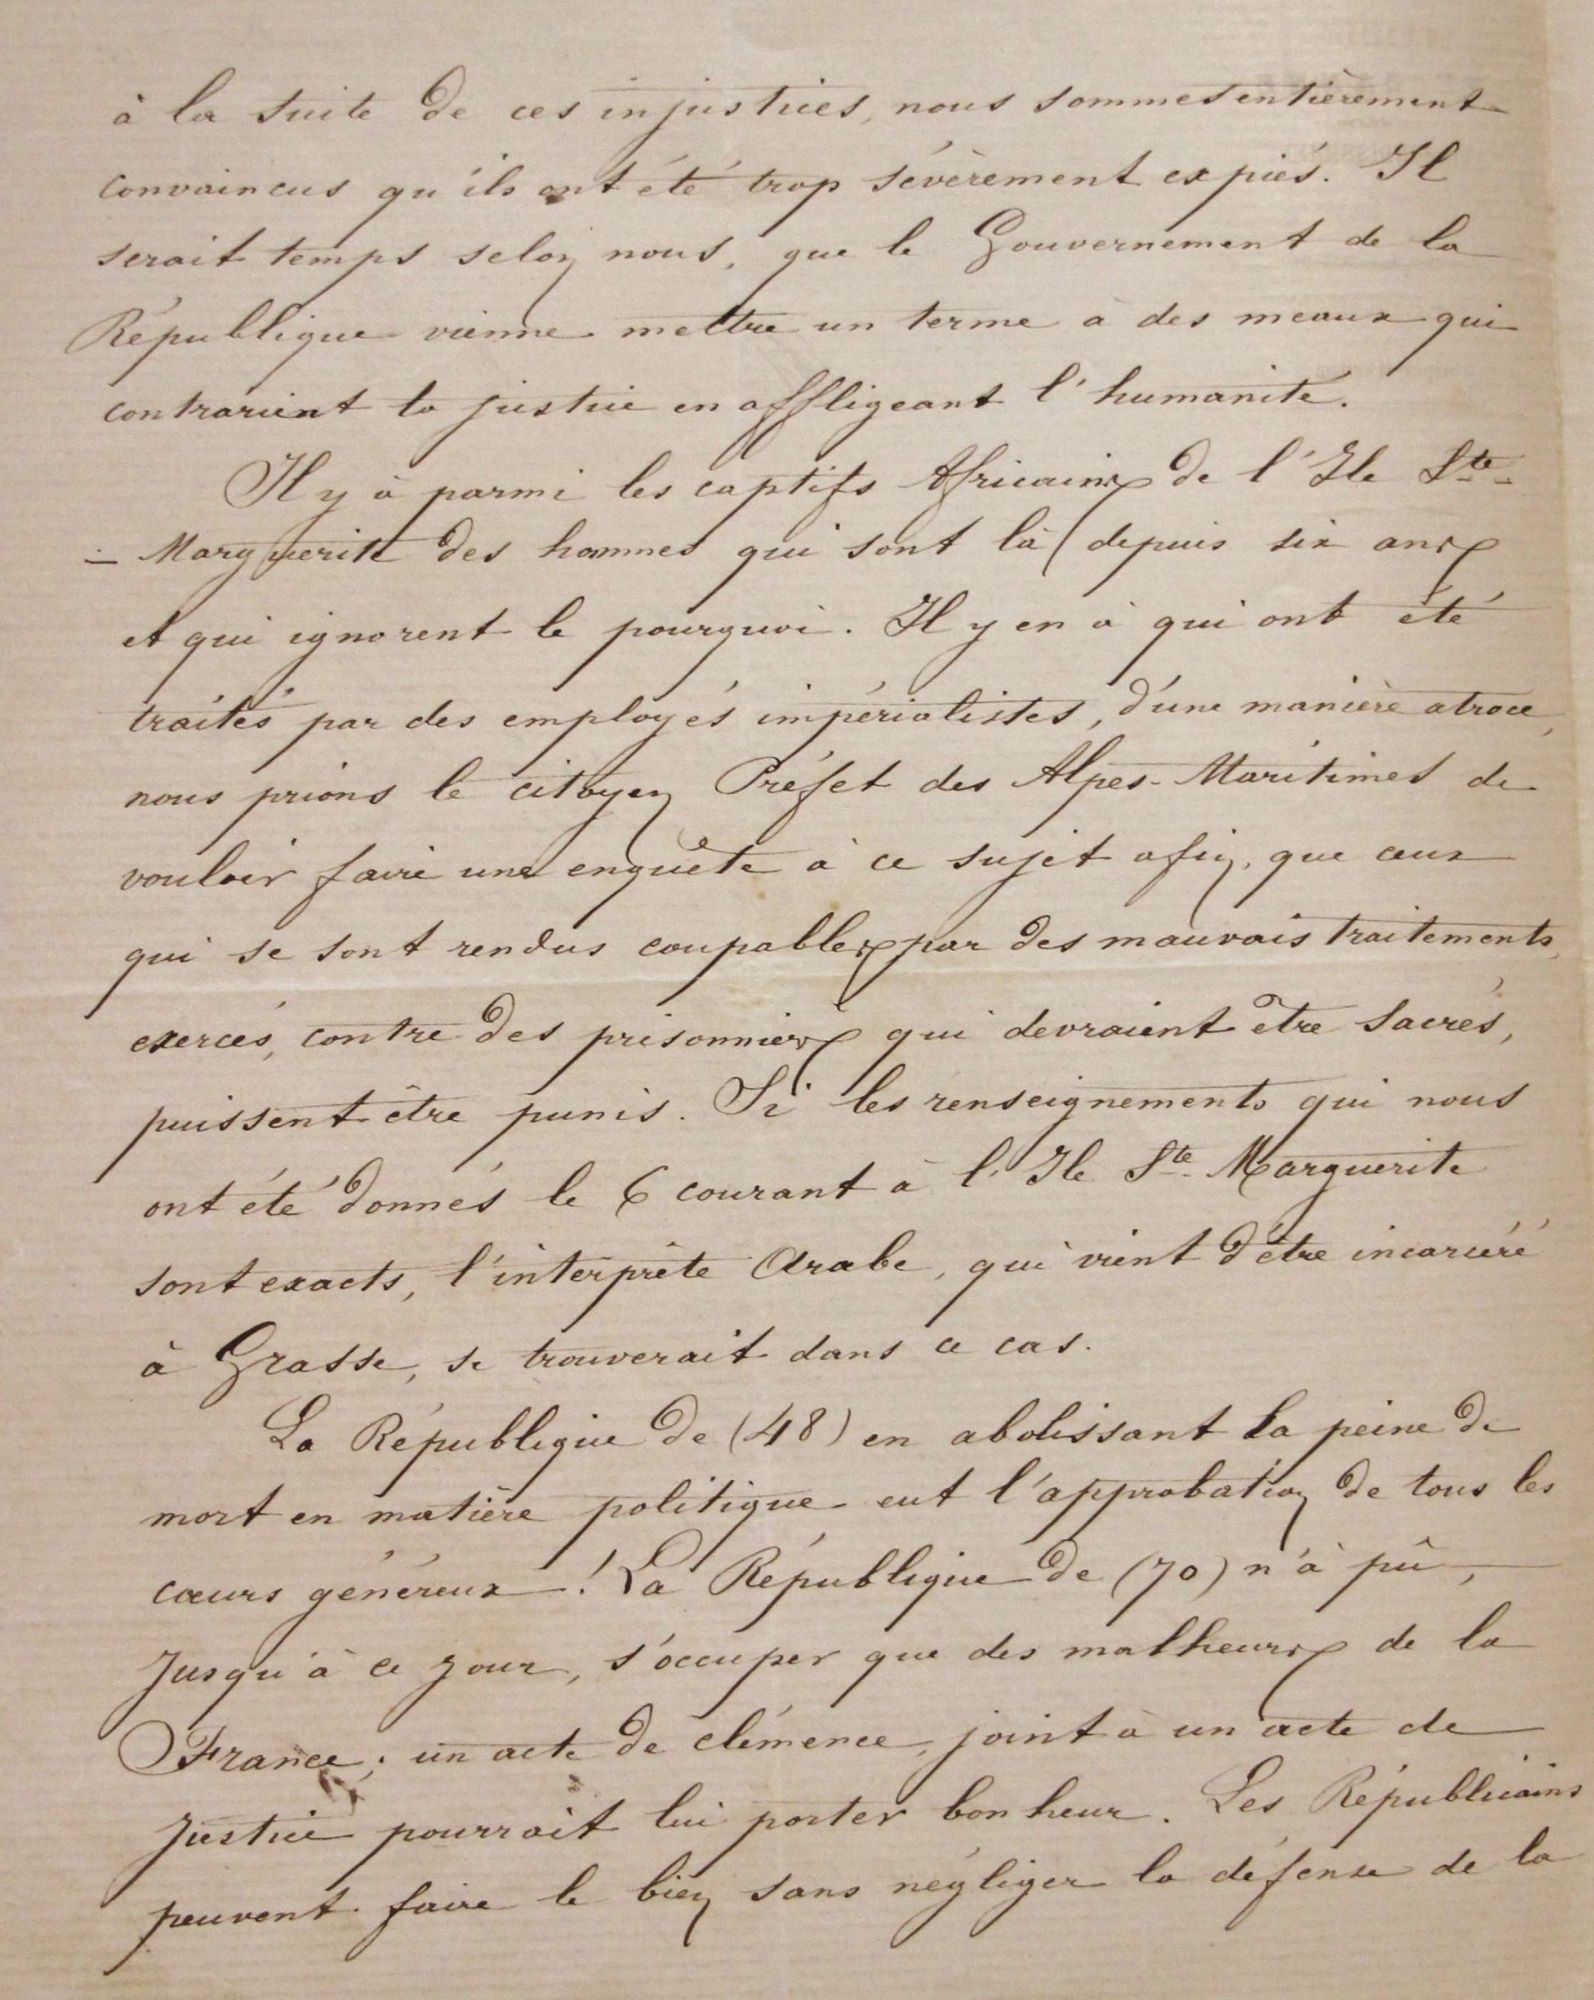 à la suite de ces injustices, nous sommes entièrement
convaincus qu'ils ont été trop sévèrement expiés. Il
serait temps selon nous, que le Gouvernement de la
République vienne mettre un terme à des meaux qui
contrarient la justice en affligeant l'humanité.
Il y à parmi les captifs Africains de l'Ile Ste-
- Marguerite des hommes qui sont là depuis six ans
et qui ignorent le pourquoi. Il y en à qui ont été
traités par des employés impérialistes, d'une manière atroce,
nous prions le citoyen Préfet des Alpes-Maritimes de
vouloir faire une enquête à ce sujet afin, que ceux
qui se sont rendus coupables par des mauvais traitements,
exercés, contre des prisonniers qui devraient être sacrés,
puissent être punis. Si les renseignements qui nous
ont été donnés le 6 courant à l'Ile Ste. Marguerite
sont exacts, l'interprête Arabe, qui vient d'être incarcéré
à Grasse, se trouverait dans ce cas.
La République de (48) en abolissant la peine de
mort en matière politique eut l'approbation de tous les
cœurs généreux ! La République de (70) n'à pû,
jusqu'à ce jour, s'occuper que des malheurs de la
France ; un acte de clémence, joint à un acte de
justice pourrait lui porter bonheur. Les Républicains
peuvent faire le bien sans négliger la défense de la